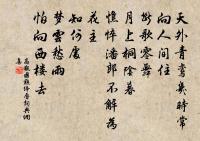 天外青鸞幾時常
向人間住
斷歌零舞
月上桐陰暮
憔悴潘郎不解為
花主
知何處
夢雲愁雨
怕向西樓去